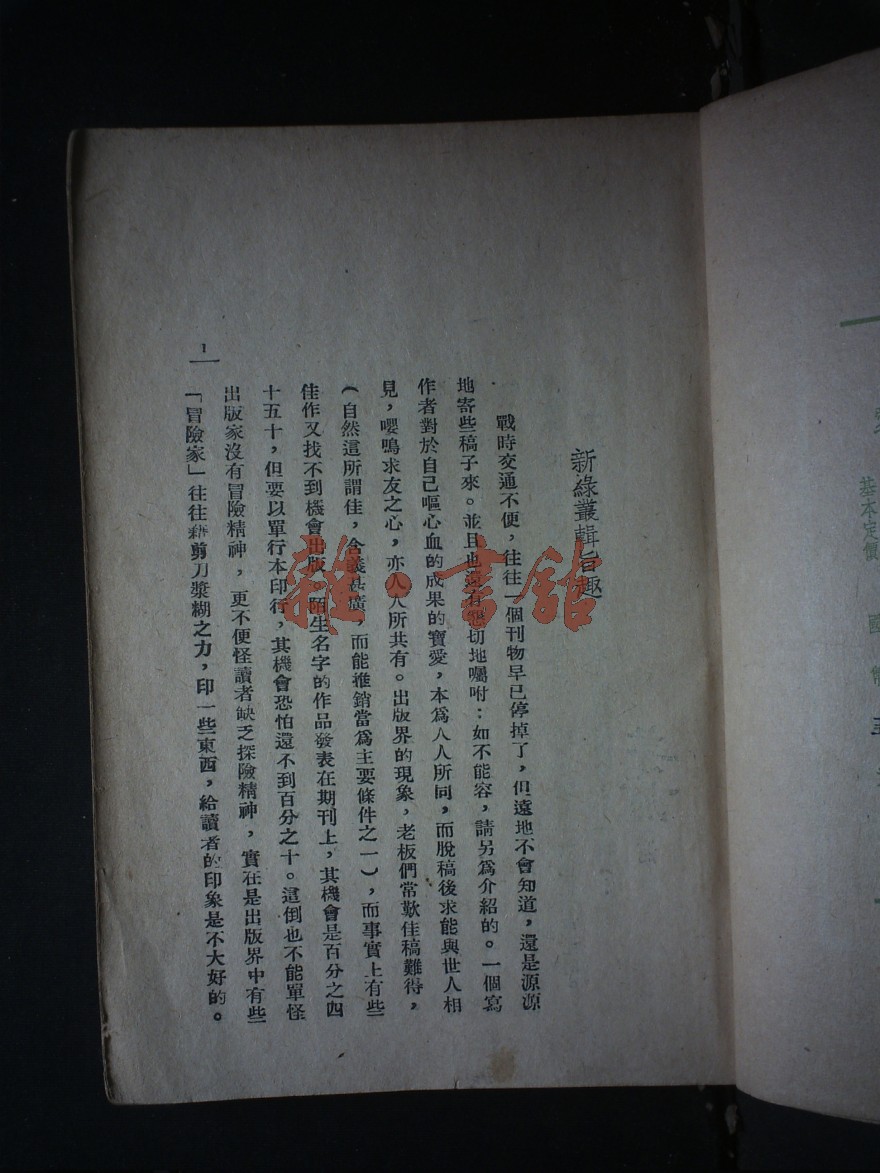 新綠叢輯旨趣
戰時交通不便，往往一個刊物早已停掉了，但遠地不會知道，還是源源
地寄些稿子來。並且也還有懇切地囑咐：如不能容，請另爲介紹的。一個寫
作者對於自己嘔心血的成果的寶愛，本爲人人所同，而脫稿後求能與世人相
見，嚶鳴求友之心，亦人人所共有。出版界的現象，老板們常歎佳稿難得，
(自然這所謂佳，含義甚廣，而能推銷當爲主要條件之一)，而事實上有些
佳作又找不到機會出版。陌生名字的作品發表在期刊上，其機會是百分之四
十五十，但要以單行本印行，其機會恐怕還不到百分之十。這倒也不能單怪
出版家沒有冒險精神，更不便怪讀者缺乏探險精神，實在是出版界中有些
「冒險家」往往藉剪刀漿糊之力，印一些東西，給讀者的印象是不大好的。
1
雜·書館
基本定價 國幣